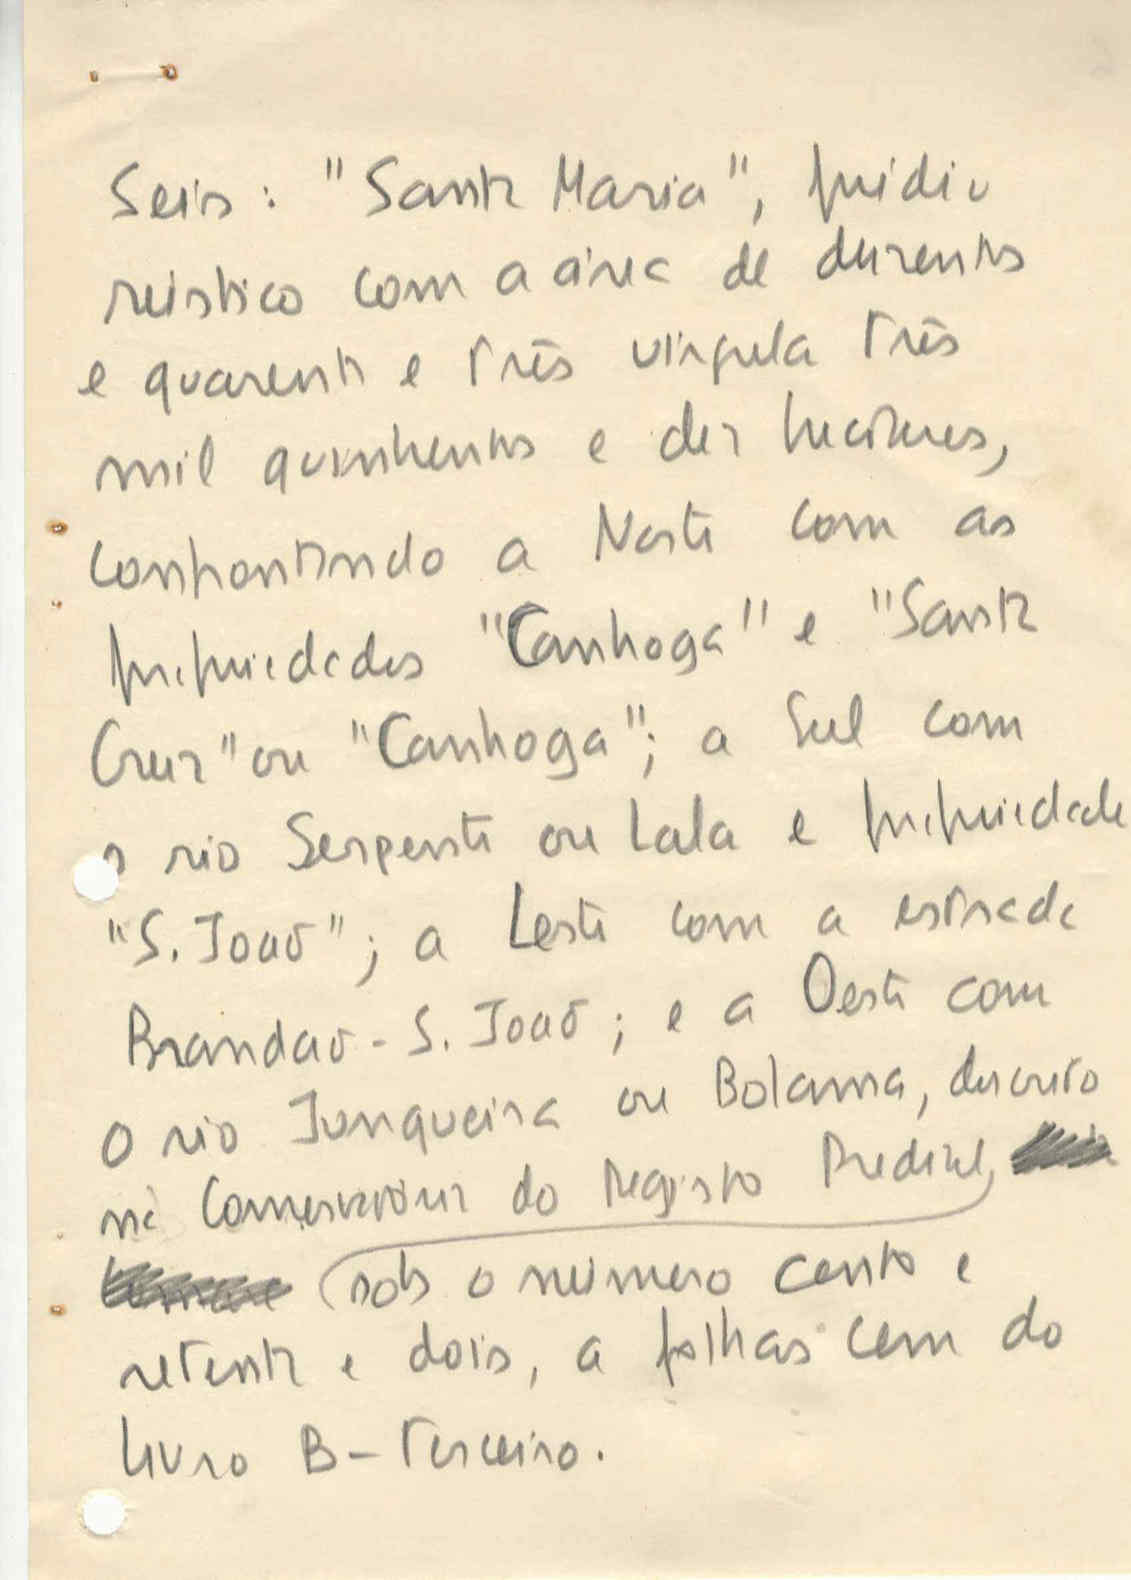 Seis: "Santa Maria", prédio
rústico com a área de duzentos
e quarenta e três vírgula três
mil quinhentos e dez hectares,
confrontando a Norte com as
propriedades "Canhoga" e "Santa
Cruz" ou "Canhoga"; a Sul com
o rio Serpente ou Lala e propriedade
"S. João"; a Leste com a estrada
Brandão - S. João; e a Oeste com
o rio Junqueira ou Bolama, descrito
na Conservatória do Registo Predial,
sob o número cento e
setenta e dois, a folhas cem do
livro B - terceiro.